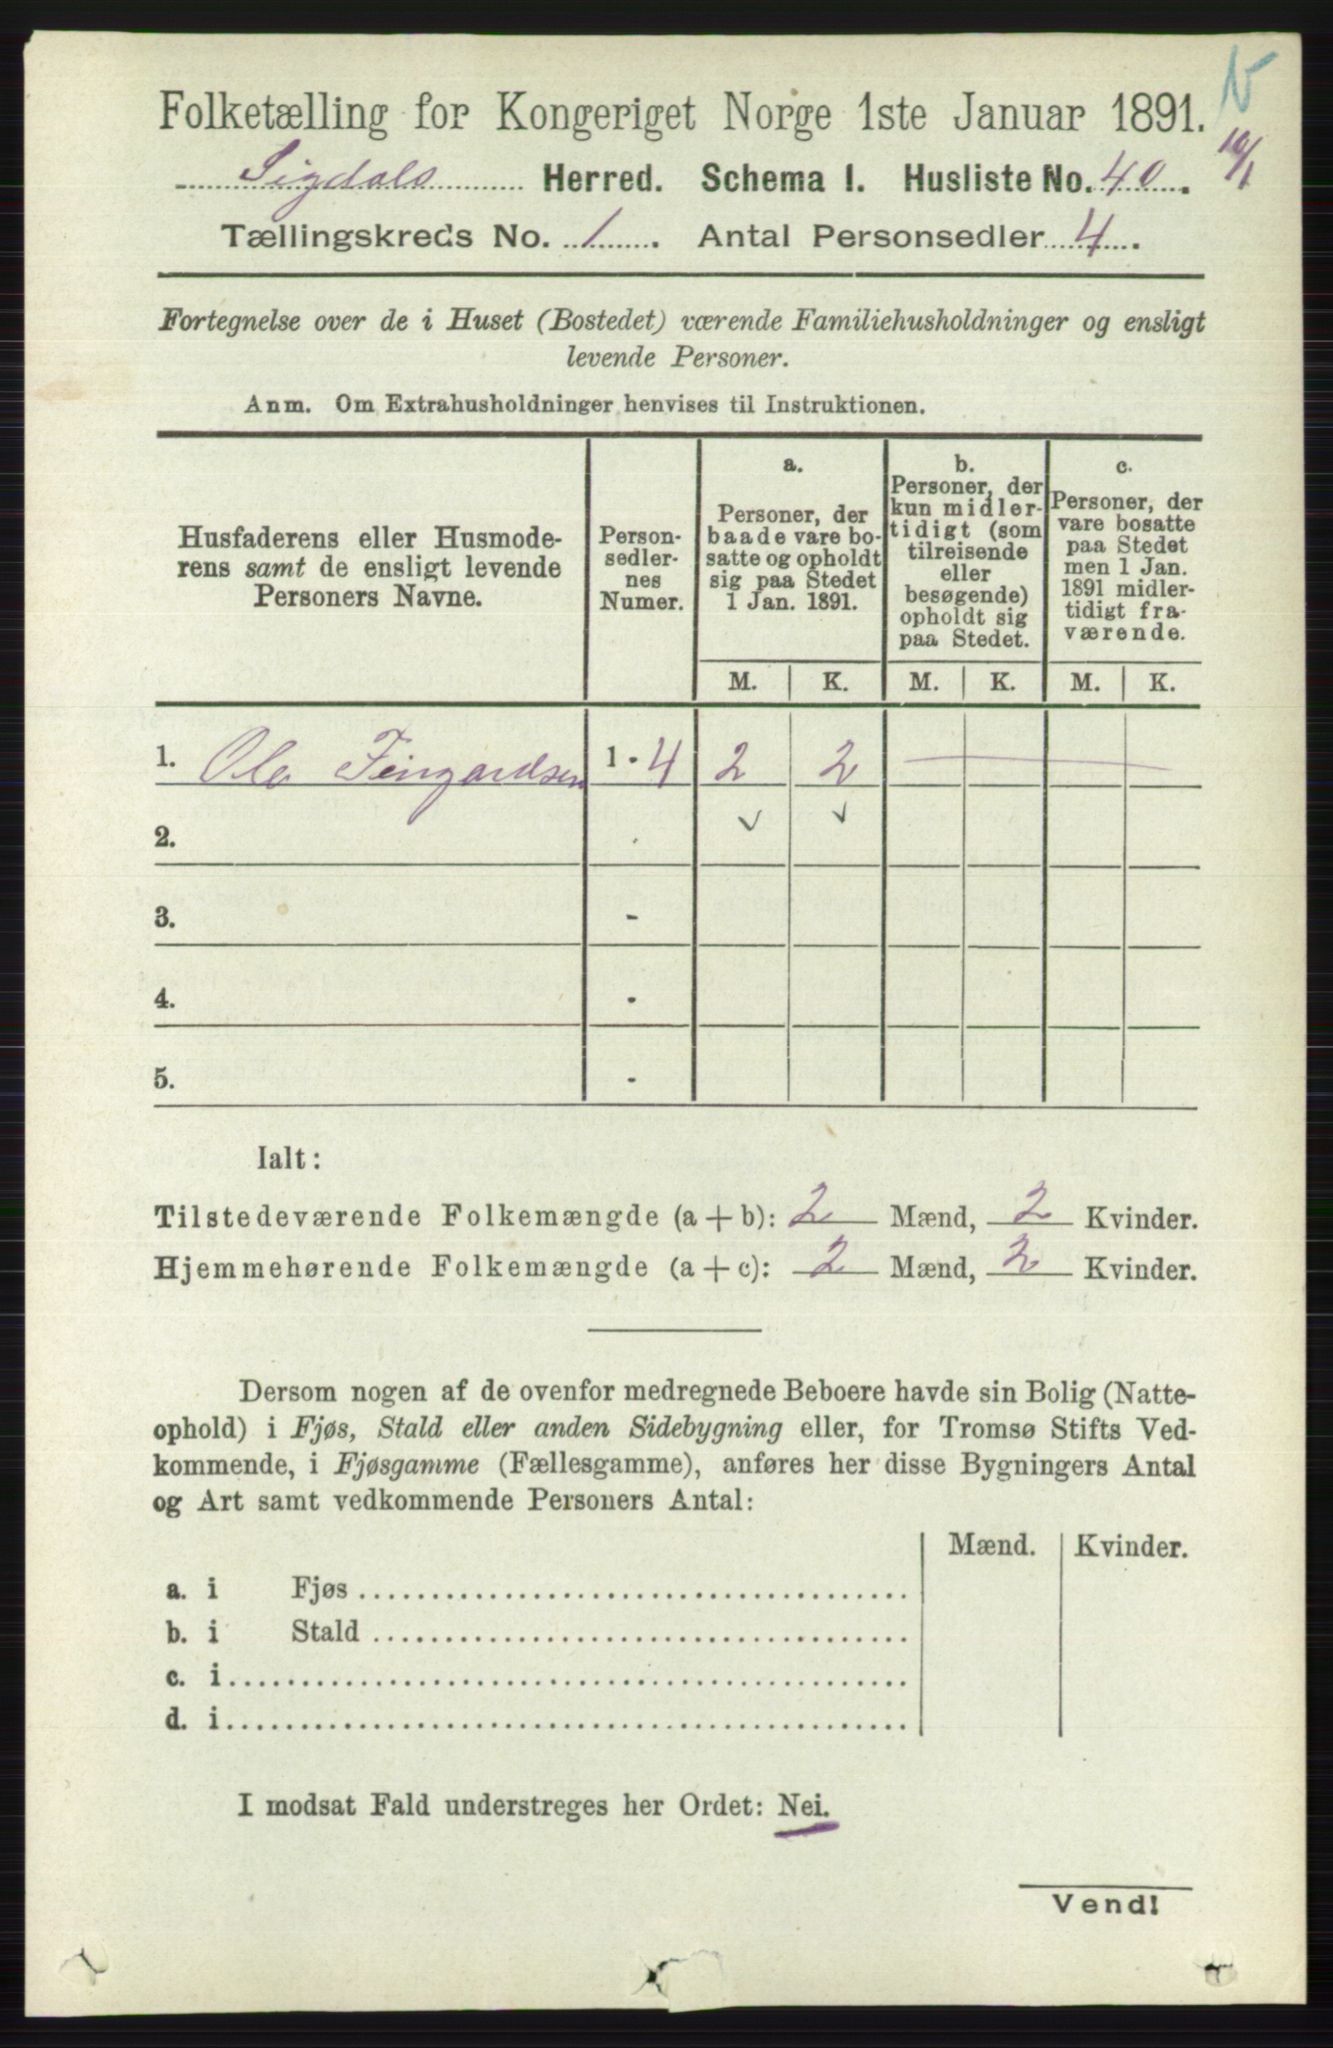 Folketælling for Kongeriget Norge 1ste Januar 1891.
10/1
Sigdals Herred. Schema I. Husliste No. 40.
Tællingskreds No. 1. Antal Personsedler 4.
Fortegnelse over de i Huset (Bostedet) værende Familiehusholdninger og ensligt
levende Personer.
Anm. Om Extrahusholdninger henvises til Instruktionen.
Husfaderens eller Husmode-
rens samt de ensligt levende
Personers Navne.
Person-
sedler-
nes
Numer.
a.
Personer, der
baade vare bo-
satte og opholdt
sig paa Stedet
1 Jan. 1891.
b.
Personer, der
kun midler-
tidigt (som
tilreisende
eller
besøgende)
opholdt sig
paa Stedet.
c.
Personer, der
vare bosatte
paa Stedet
men 1 Jan.
1891 midler-
tidigt fra-
værende.
M. K. M. K. M. K.
1. Ole 1 - 4 2 2
2.
3. -
4. -
5. -
Ialt:
Tilstedeværende Folkemængde (a + b): 2 Mænd, 2 Kvinder.
Hjemmehørende Folkemængde (a + c): 2 Mænd, 2 Kvinder.
Dersom nogen af de ovenfor medregnede Beboere havde sin Bolig (Natte-
ophold) i Fjøs, Stald eller anden Sidebygning eller, for Tromsø Stifts Ved-
kommende, i Fjøsgamme (Fællesgamme), anføres her disse Bygningers Antal
og Art samt vedkommende Personers Antal:
Mænd. Kvinder.
a. i Fjøs
b. i Stald
c. i
d. i
I modsat Fald understreges her Ordet: Nei.
Vend!